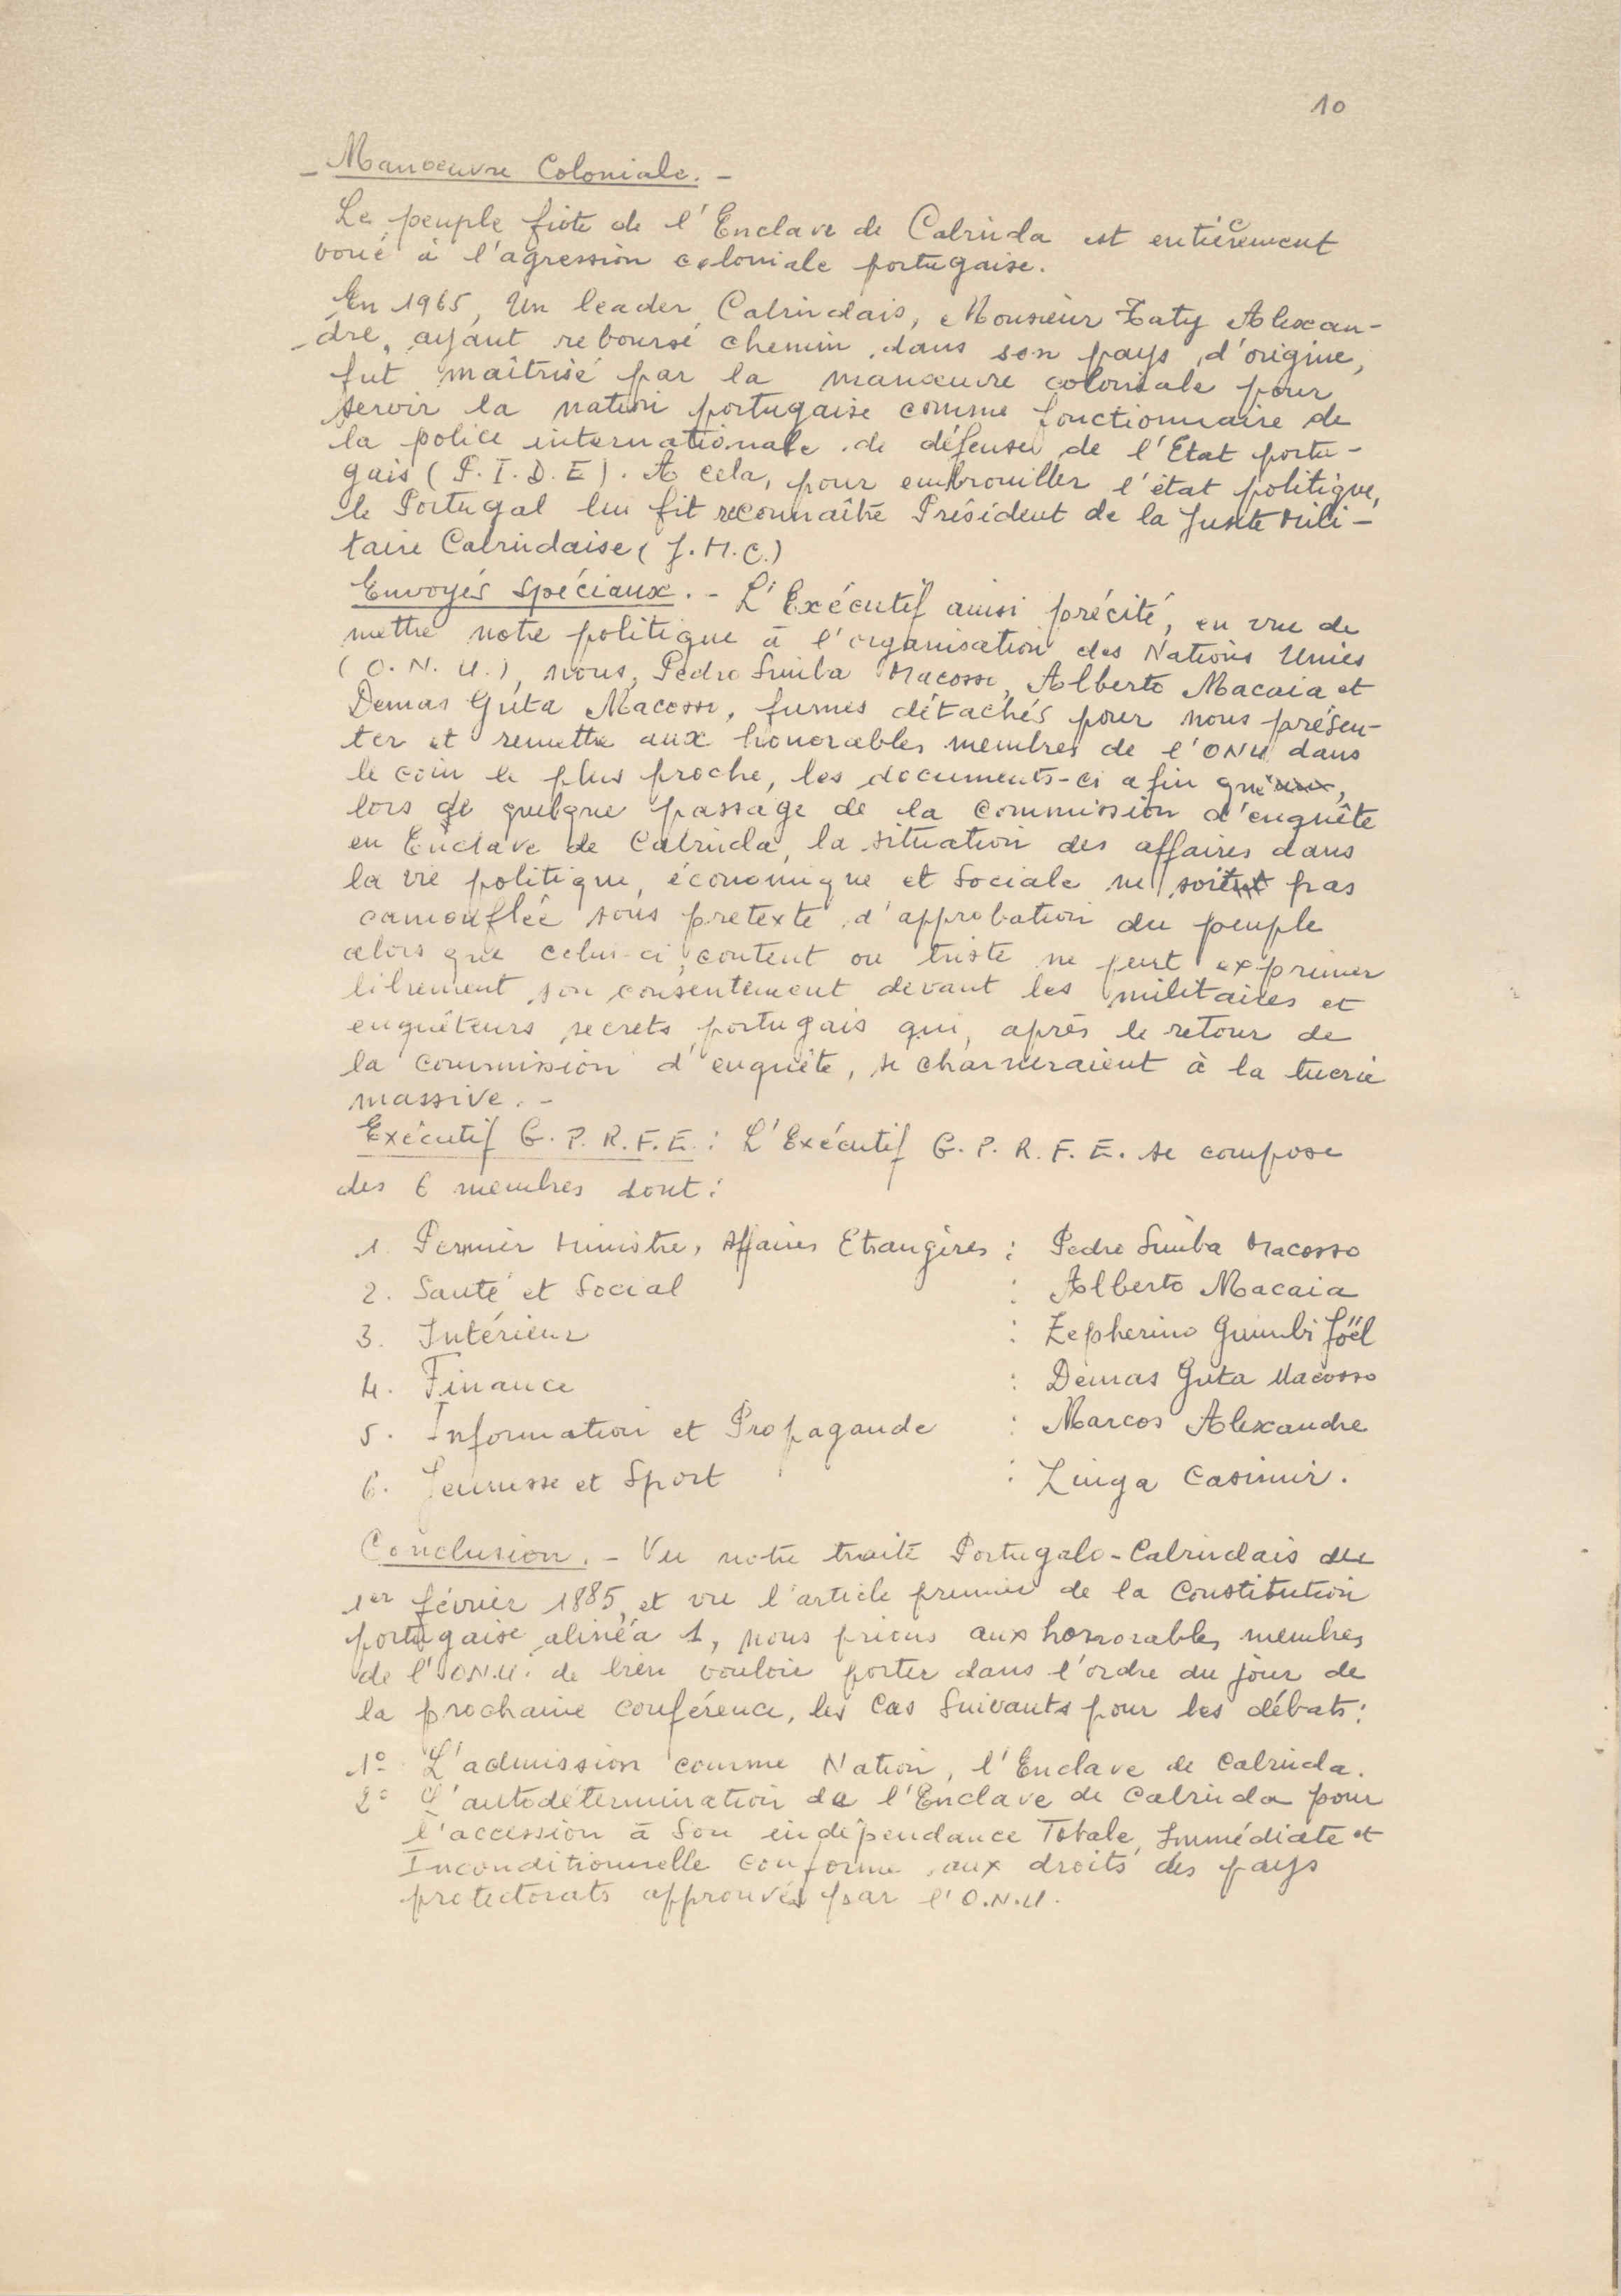 10
- Manoeuvre Coloniale. -
Le peuple fiote de l'Enclave de Cabinda est entièrement
voué à l'agression coloniale portugaise.
En 1965, Un leader Cabindais, Monsieur Taty Alexan-
-dre, ayant reboursé chemin dans son pays d'origine,
fut maîtrisé par la manœuvre coloniale pour
servir la nation portugaise comme fonctionnaire de
la police internationale de défense de l'Etat portu-
gais (P.I.D.E). A cela, pour embrouiller l'état politique,
le Portugal lui fit reconnaître Président de la Junte Mili-
taire Cabindaise (J.M.C.)
Envoyés Spéciaux. - L'Exécutif ainsi précité, en vue de
mettre notre politique à l'organisation des Nations Unies
(O.N.U.), nous, Pedro Simba Macosso, Alberto Macaia et
Demas Guta Macosso, fumes détachés pour nous présen-
ter et remettre aux honorables membres de l'ONU dans
le coin le plus proche, les documents-ci afin que,
lors de quelque passage de la Commission d'enquête
en Enclave de Cabinda, la situation des affaires dans
la vie politique, économique et Sociale ne soit pas
camouflée sous pretexte d'approbation du peuple
alors que celui-ci, content ou triste ne peut exprimer
librement son consentement devant les militaires et
enquêteurs secrets portugais qui, après le retour de
la commission d'enquête, se charneraient à la tuerie
massive. -
Exécutif G.P.R.F.E.: L'Exécutif G.P.R.F.E. se compose
des 6 membres dont:
1. Permier Ministre, Affaires Etrangères : Pedro Simba Macosso
2. Santé et Social : Alberto Macaia
3. Intérieur : Zepherino Guimbi Joël
4. Finance : Demas Guta Macosso
5. Information et Propagande : Marcos Alexandre
6. Jeunesse et Sport : Zinga Casimir.
Conclusion. - Vu notre traité Portugalo-Cabindais du
1er février 1885, et vu l'article premier de la Constitution
portugaise alinéa 1, nous prions aux honorables membres
de l'ONU. de bien vouloir porter dans l'ordre du jour de
la prochaine conférence, les Cas Suivants pour les débats:
1° L'admission comme Nation, l'Enclave de Cabinda.
2° L'autodétermination de l'Enclave de Cabinda pour
l'accession à Son indépendance Totale, Immédiate et
Inconditionnelle conforme aux droits des pays
protectorats approuvés par l'O.N.U.